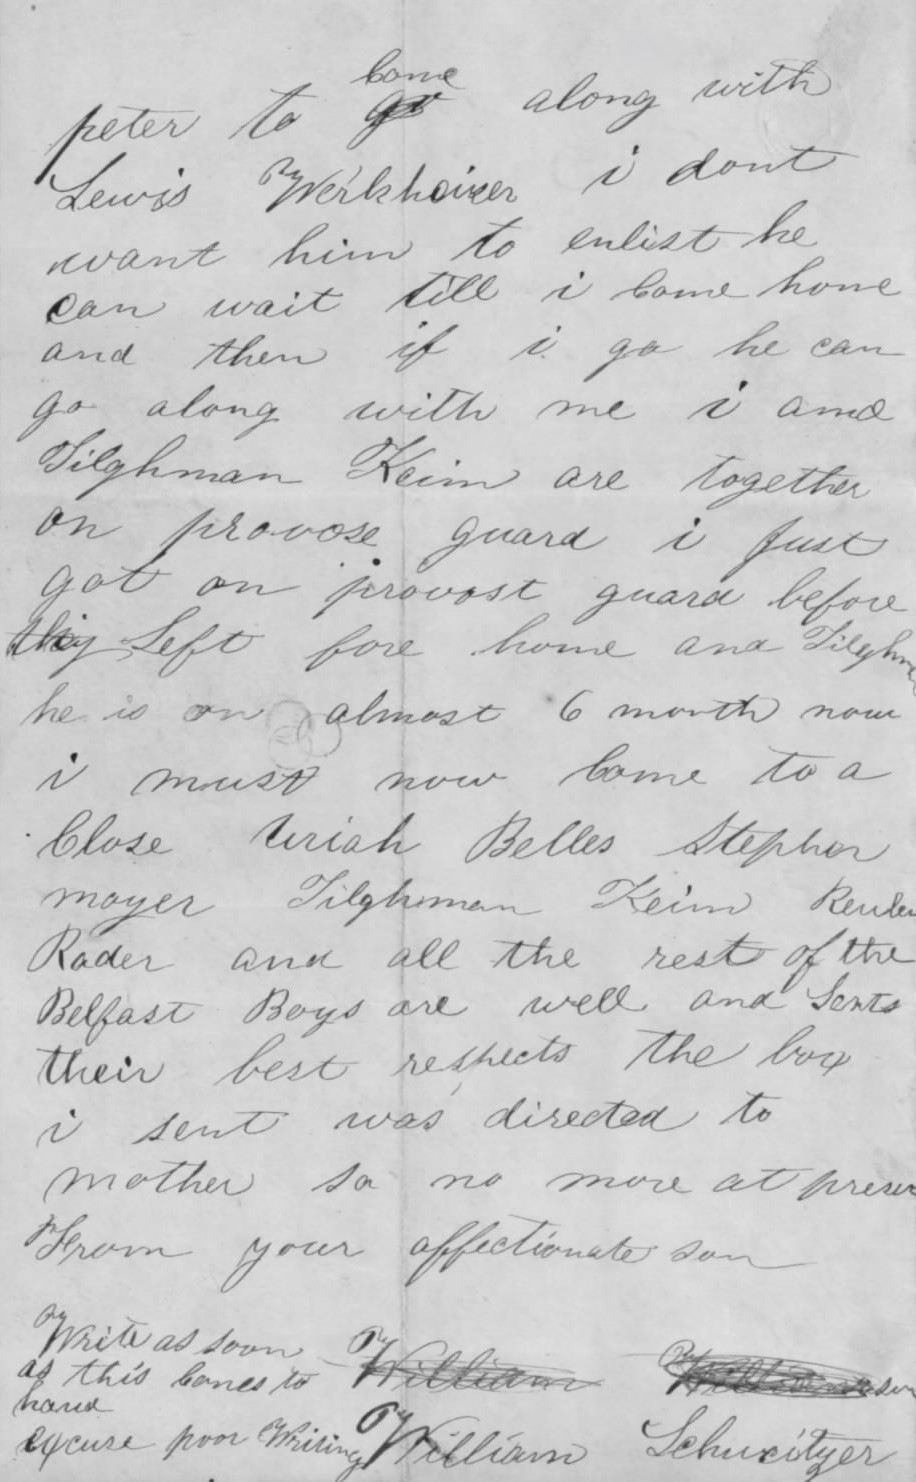 come
peter to go along with
Lewis Werkheiser i dont
want him to enlist he
can wait till i come home
and then if i go he can
go along with me i and
Tilghman Keim are together
on provose guard i just
got on provost guard before
they left fore home and Tilghm
he is on almost 6 month now
i must now come to a
Close Uriah Belles Stephen
moyer Tilghman Keim Reuben
Rader and all the rest of the
Belfast Boys are well and Sents
their best respects the box
i sent was directed to
mother so no more at presen
From your affectionate son
Write as soon
as this comes to
hand
excuse poor Writing
William William
William Schweitzer